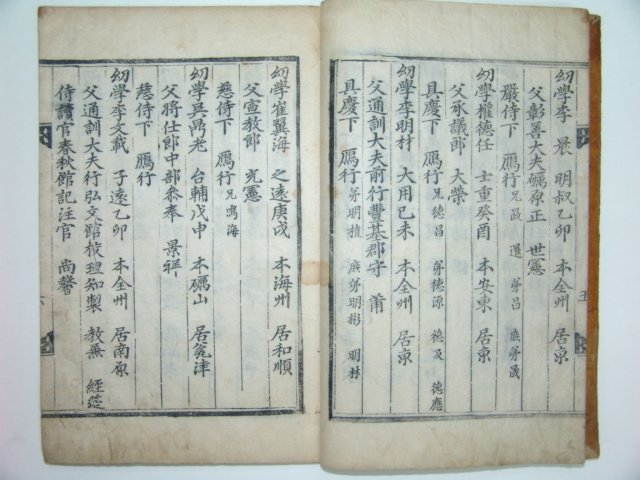 幼學李晨 明叔乙卯 本全州 居京
父彰善大夫礪原正 世憲
嚴侍下 鴈行 兄晸 暹 弟昌 庶弟晟
幼學權德任 士重癸酉 本安東 居京
父承議郎 大榮
具慶下 鴈行 兄德昌 弟德源 德及 德應
幼學李明材 大用己未 本全州 居京
父通訓大夫前行豐基郡守 莆
具慶下 鴈行 弟明推 庶弟明彬 明材
幼學崔翼海 之遠庚戌 本海州 居和順
父宣教郎 光憲
慈侍下 鴈行 兄鳴海
幼學吳鼎老 台輔戊申 本礪山 居龍津
父將仕郎中部參奉 景祥
慈侍下 鴈行
幼學李文載 子遠乙卯 本全州 居南原
父通訓大夫行弘文館校理知製 教兼 經筵
侍讀官春秋館記注官 尚馨
五
六